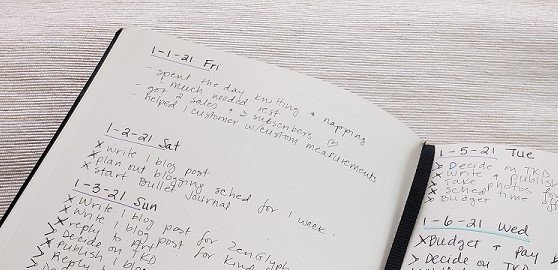 1-1-21 Fri
- spent the day knitting + napping
much needed rest
- got 2 sales + 2 subscribers ♡
- helped 1 customer w/custom measurements
1-2-21 Sat
X write 1 blog post
X plan out blogging sched for 1 week..
X start Bullet Journal
1-3-21 Sun
X Write 1 blog post for Zenglyph
X Write 1 blog post for Kind
X reply to Art
> Decide on TKD
X Publish 1 blog
> Reply to
1-5-21 Tue
> Decide on TKD
X Write + publis
X Take photos fo
X Sched time
X Budget
1-6-21 Wed
X Budget + pay
> Decide on TKD